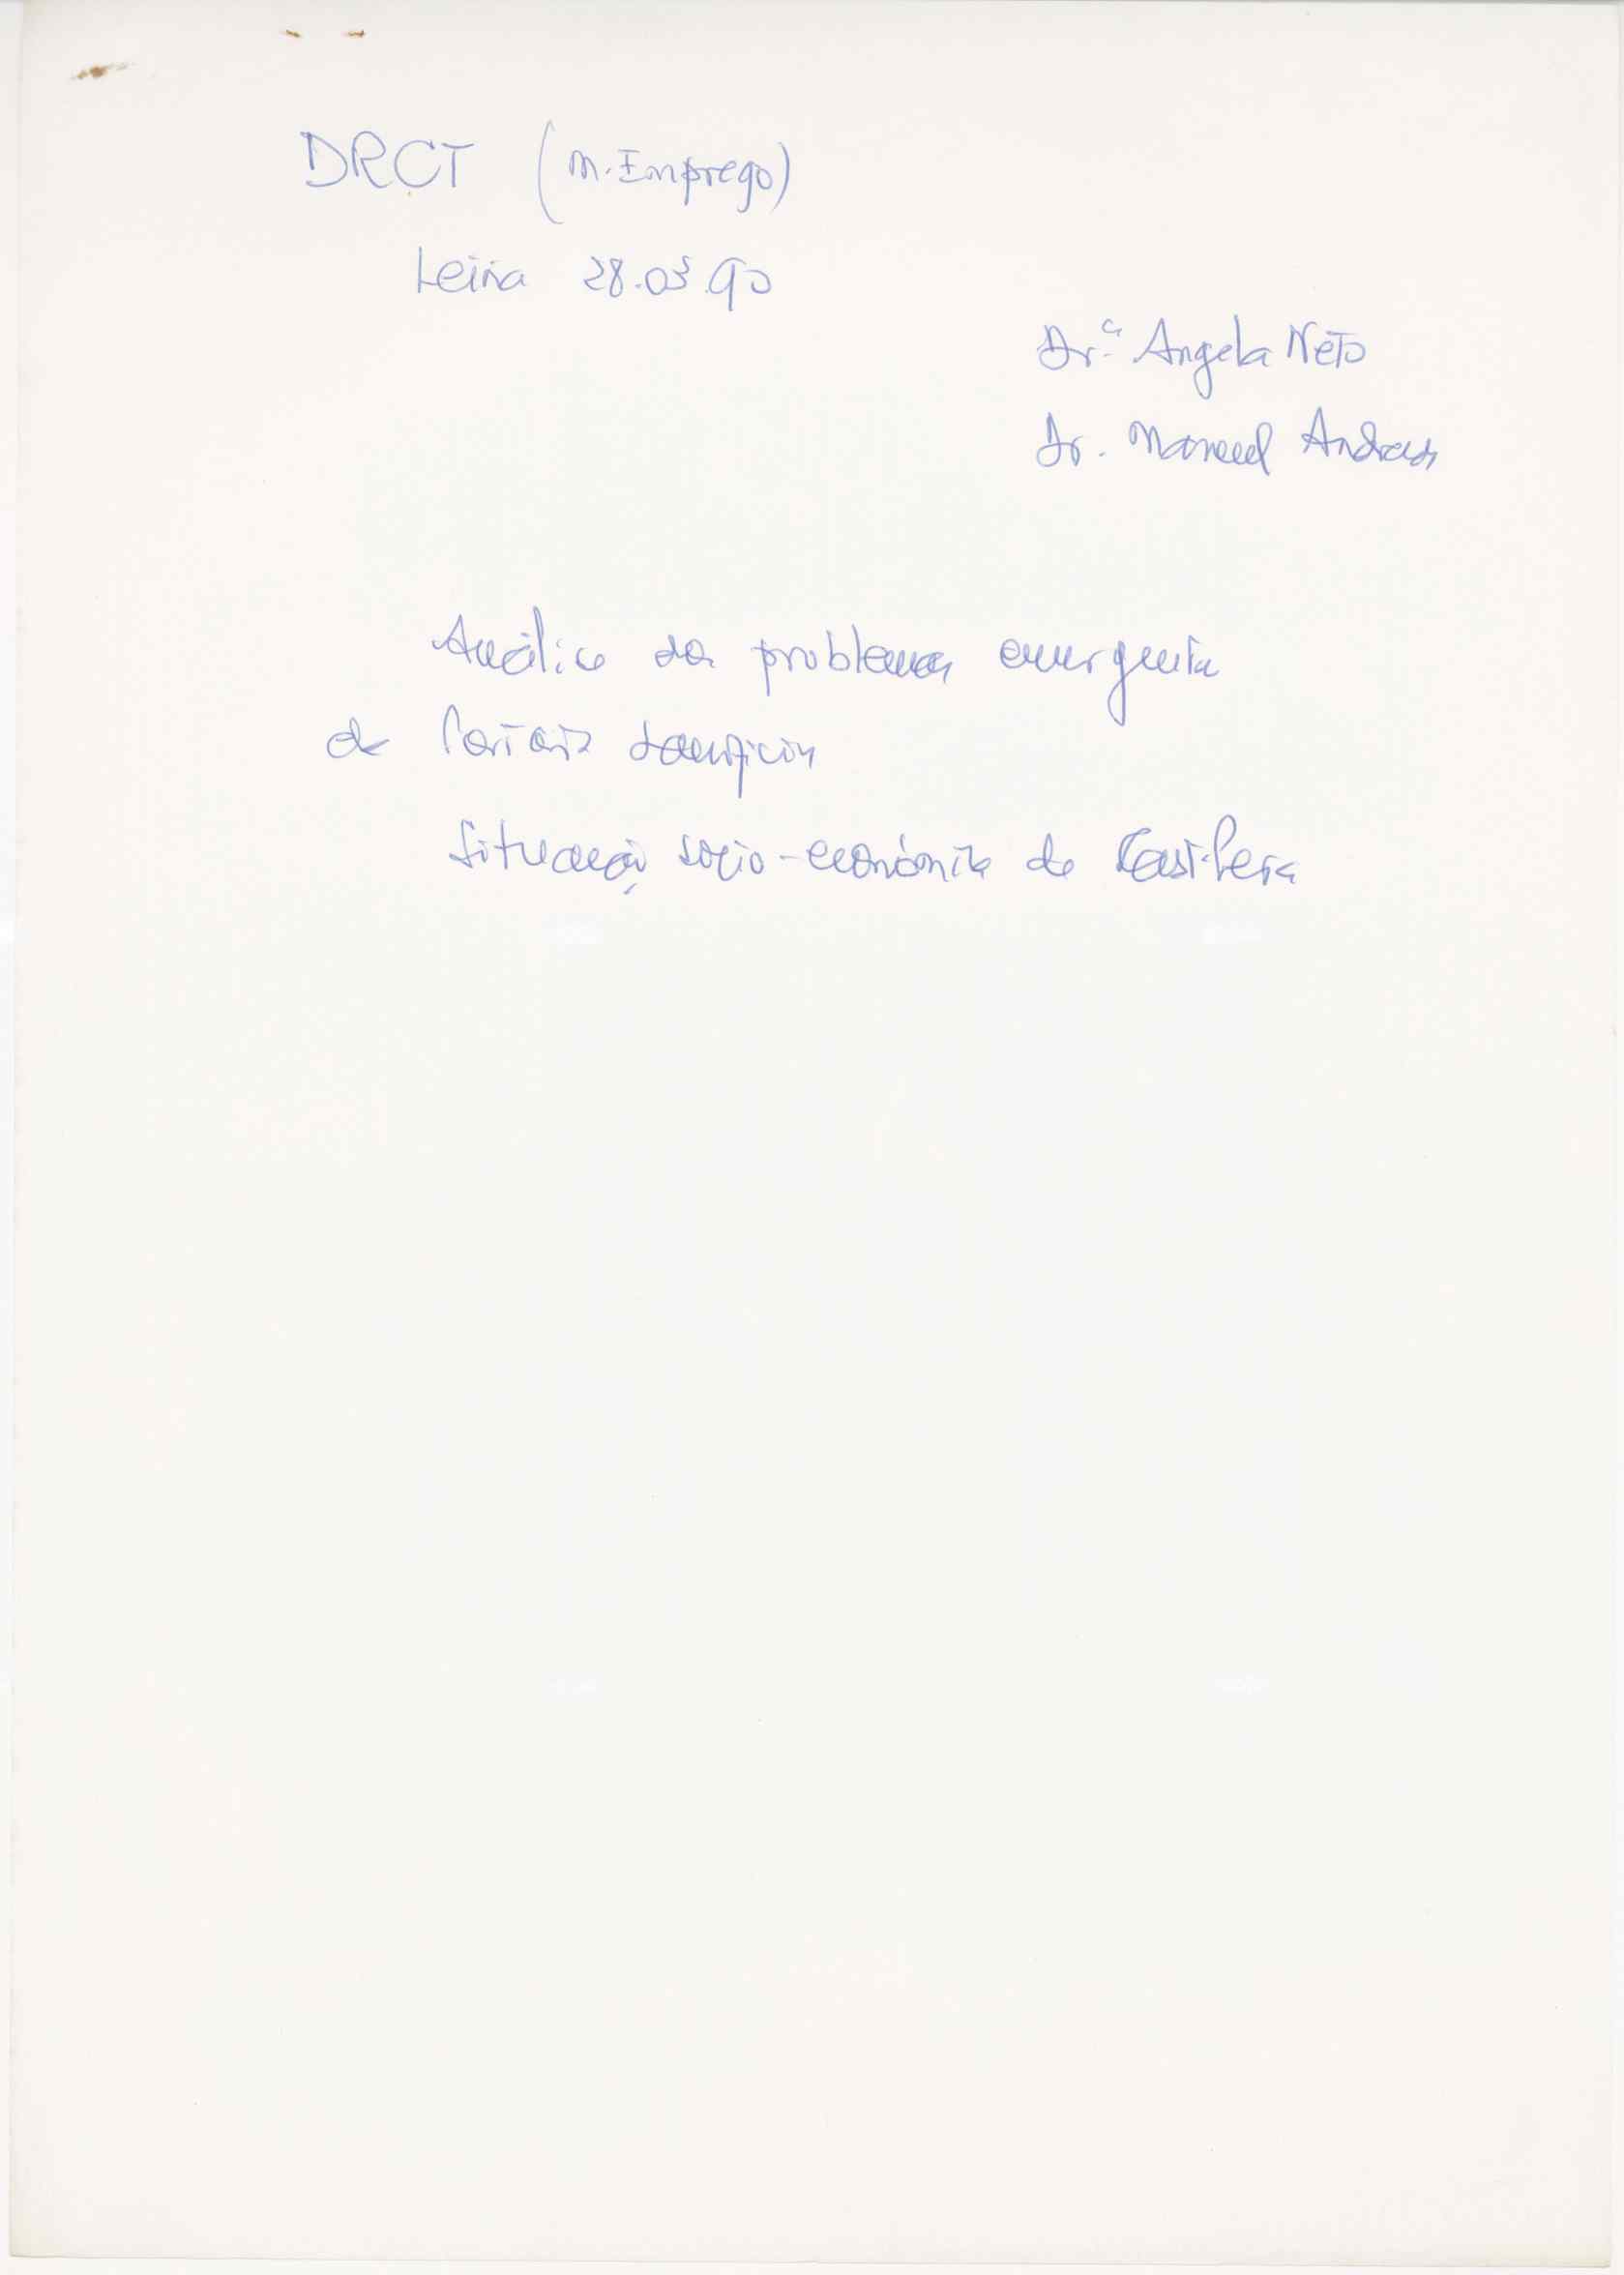 DRCT (M. Emprego)
Leiria 28.03.90
Dr.ª Angela Neto
Dr. Manuel Andrade
Análise dos problemas emergentes
de
Situação sócio-económica de Cast. Pera